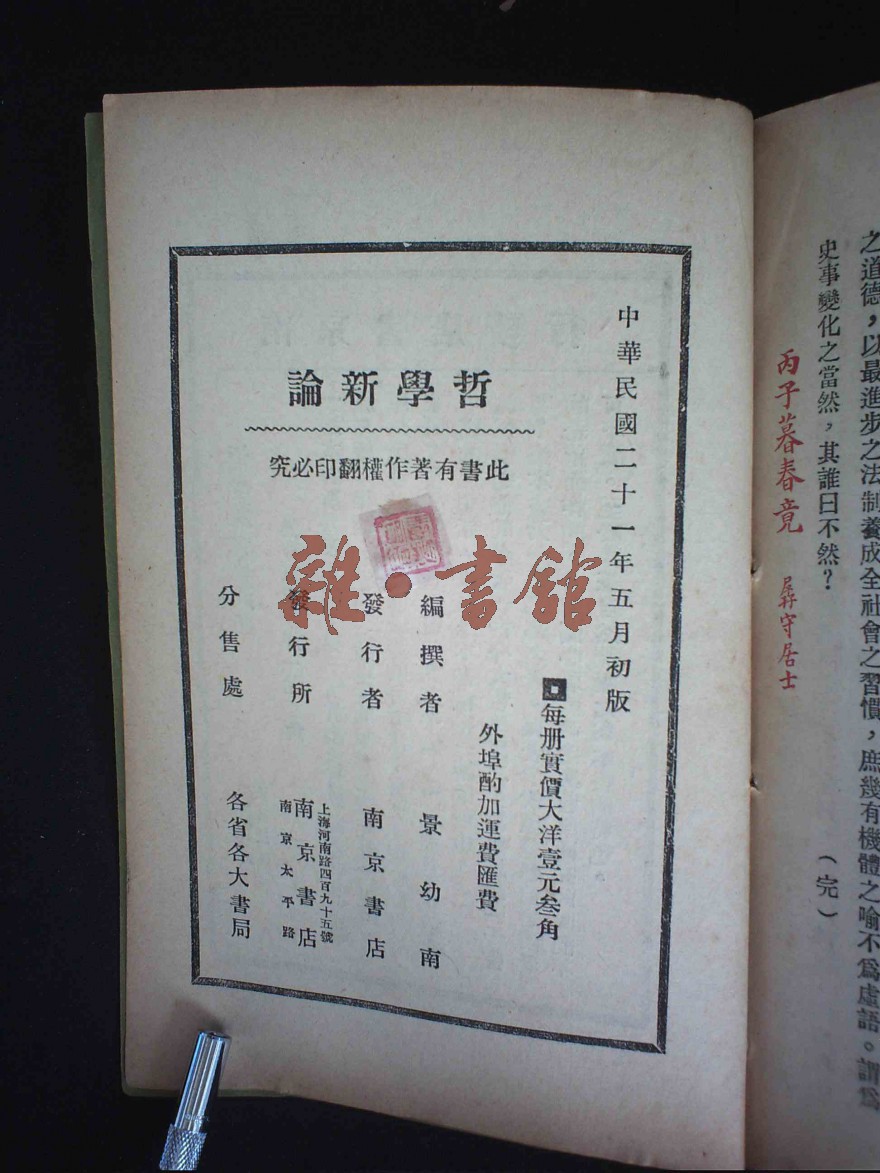 之道德，以最進步之法制養成全社會之習慣，庶幾有機體之喻不爲虛語。謂爲
史事變化之當然，其誰曰不然？
（完）
丙子暮春竟 彛守居士
中華民國二十一年五月初版
每册實價大洋壹元叁角
外埠酌加運費匯費
哲學新論
此書有著作權翻印必究
編撰者 景幼南
發行者 南京書店
發行所 上海河南路四百九十五號
南京書店
南京太平路
分售處 各省各大書局
雜·書館